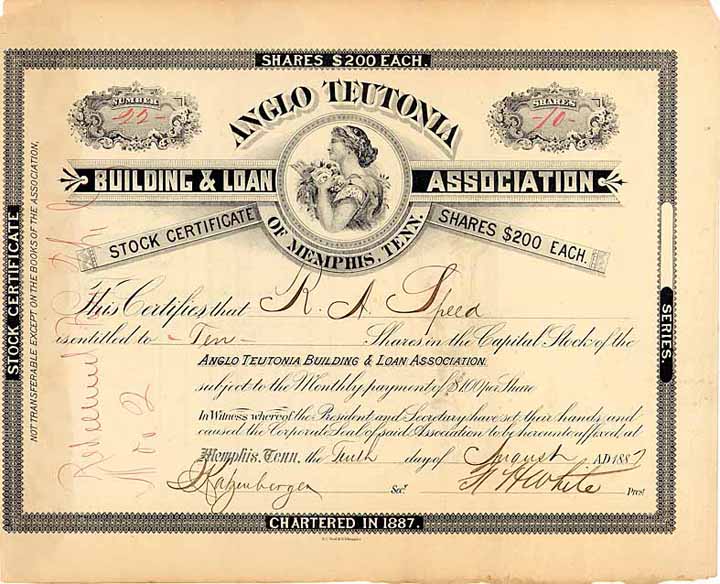 SHARES $200 EACH.
NUMBER
-25-
SHARES
-10-
ANGLO TEUTONIA
BUILDING & LOAN ASSOCIATION
OF MEMPHIS, TENN.
STOCK CERTIFICATE
SHARES $200 EACH.
This Certifies that R. A. Speed
is entitled to -Ten- Shares in the Capital Stock of the
ANGLO TEUTONIA BUILDING & LOAN ASSOCIATION.
subject to the Monthly payment of $1.00 per Share
In Witness whereof the President and Secretary have set their hands and
caused the Corporate Seal of said Association to be hereunto affixed, at
Memphis, Tenn. the Tenth day of August AD 1887
Katzenberger Secy. W H White Prest
CHARTERED IN 1887.
STOCK CERTIFICATE
NOT TRANSFERABLE EXCEPT ON THE BOOKS OF THE ASSOCIATION.
Redeemed
No 2
SERIES.